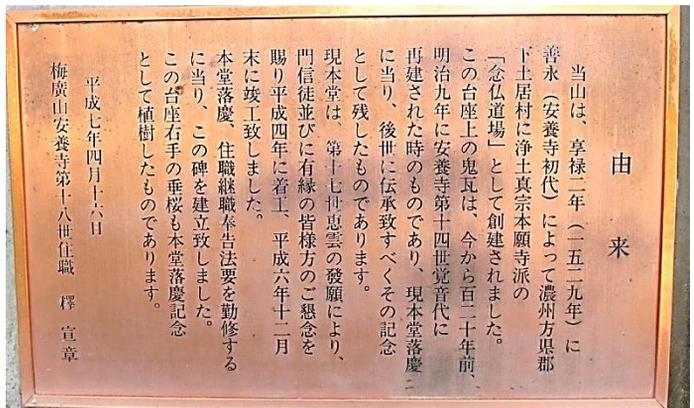 由来
当山は、享禄二年（一五二九年）に
善永（安養寺初代）によって濃州方県郡
下土居村に浄土真宗本願寺派の
「念仏道場」として創建されました。
この台座上の鬼瓦は、今から百二十年前、
明治九年に安養寺第十四世覚音代に
再建された時のものであり、現本堂落慶
に当り、後世に伝承致すべくその記念
として残したものであります。
現本堂は、第十七世恵雲の發願により、
門信徒並びに有縁の皆様方のご懇念を
賜り平成四年に着工、平成六年十二月
末に竣工致しました。
本堂落慶、住職継職奉告法要を勤修する
に当り、この碑を建立致しました。
この台座右手の垂桜も本堂落慶記念
として植樹したものであります。
平成七年四月十六日
梅廣山安養寺第十八世住職 釋宣章